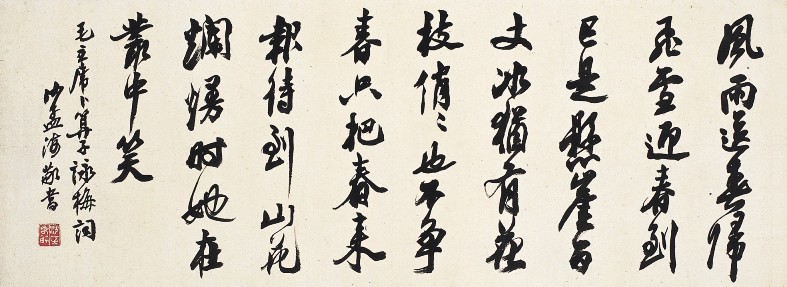 風雨送春歸
飛雪迎春到
已是懸崖百
丈冰猶有花
枝俏〻也不爭
春只把春來
報待到山花
爛熳时她在
叢中笑
毛主席卜算子詠梅詞
沙孟海敬書